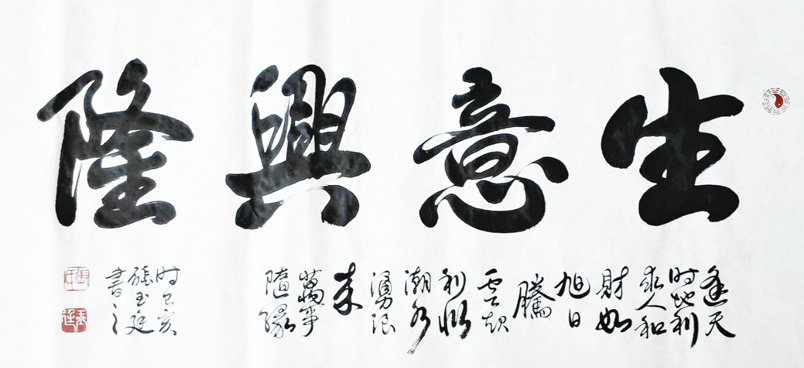 生意興隆
逢天
时地利
求人和
財如
旭日
騰
雲起
利似
潮水
湧浪
来
萬事
隨緣
时己亥
玉庭
書之